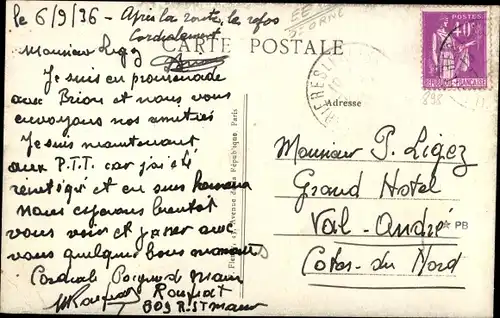 le 6/9/36 - Après la route, le repos
Cordialement
CARTE POSTALE
Monsieur Ligez
Je suis en promenade
avec Brion et nous vous
envoyons nos amitiés
Je suis maintenant
aux P.T.T. car j'ai été
et en suis
Nous espérons bientôt
vous voir et avec
vous quelques bons moments
Cordiale Poignée de main
Rouffiat
609 R. St maur
Adresse
Monsieur P. Ligez
Grand Hotel
Val-André
Cotes-du Nord
Avenue de la République, Paris
POSTES
40c
REPUBLIQUE FRANÇAISE
898
PB